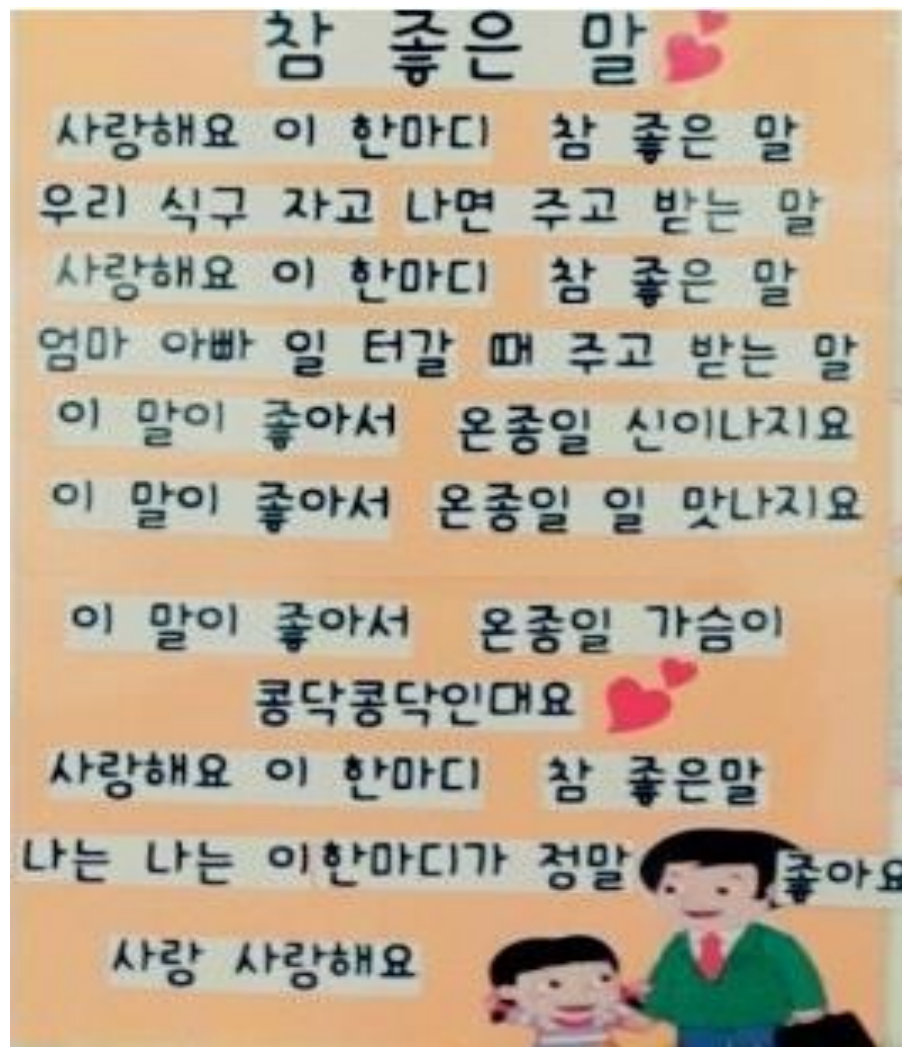 참 좋은 말
사랑해요 이 한마디 참 좋은 말
우리 식구 자고 나면 주고 받는 말
사랑해요 이 한마디 참 좋은 말
엄마 아빠 일 터갈 때 주고 받는 말
이 말이 좋아서 온종일 신이나지요
이 말이 좋아서 온종일 일 맛나지요
이 말이 좋아서 온종일 가슴이
콩닥콩닥인대요
사랑해요 이 한마디 참 좋은말
나는 나는 이한마디가 정말 좋아요
사랑 사랑해요